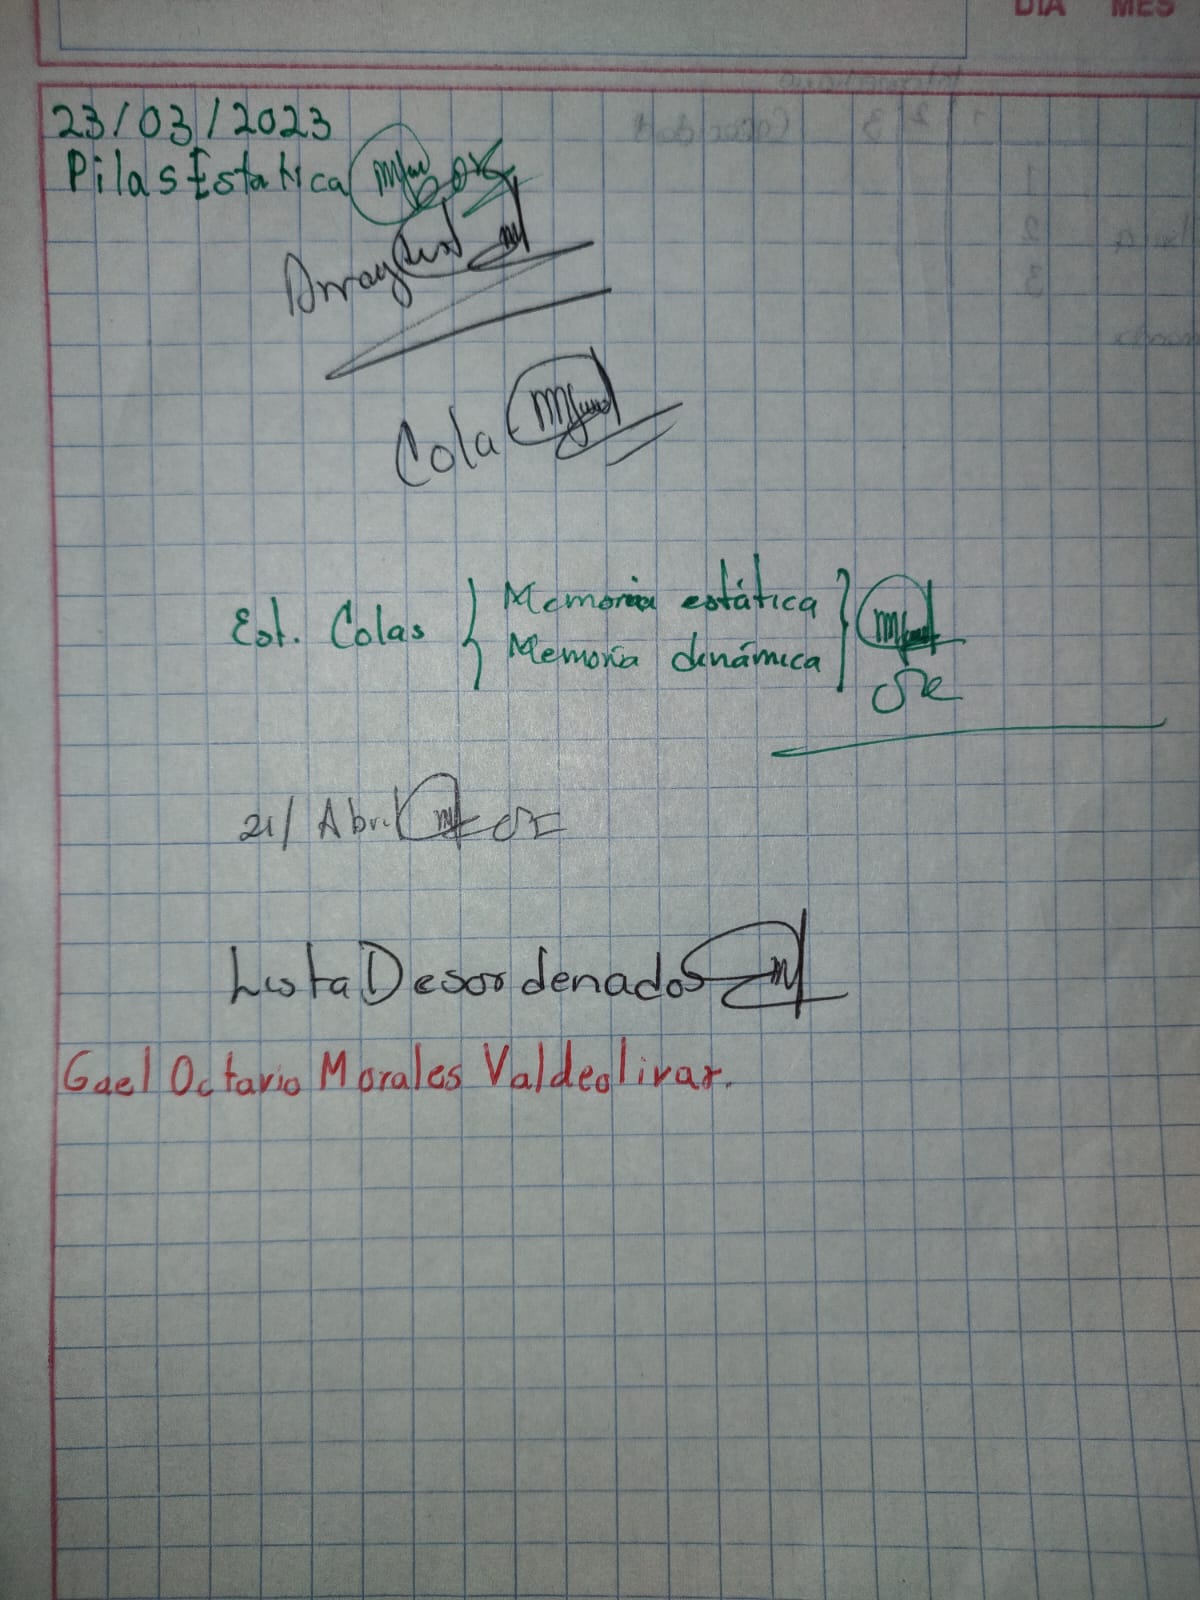 DIA MES
23/03/2023
Pilas Estatica ok
Array
Cola
Est. Colas { Memoria estática }
Memoria dinámica
Ok
21/Abril OK
Lista Desordenados
Gael Octavio Morales Valdeolivar.